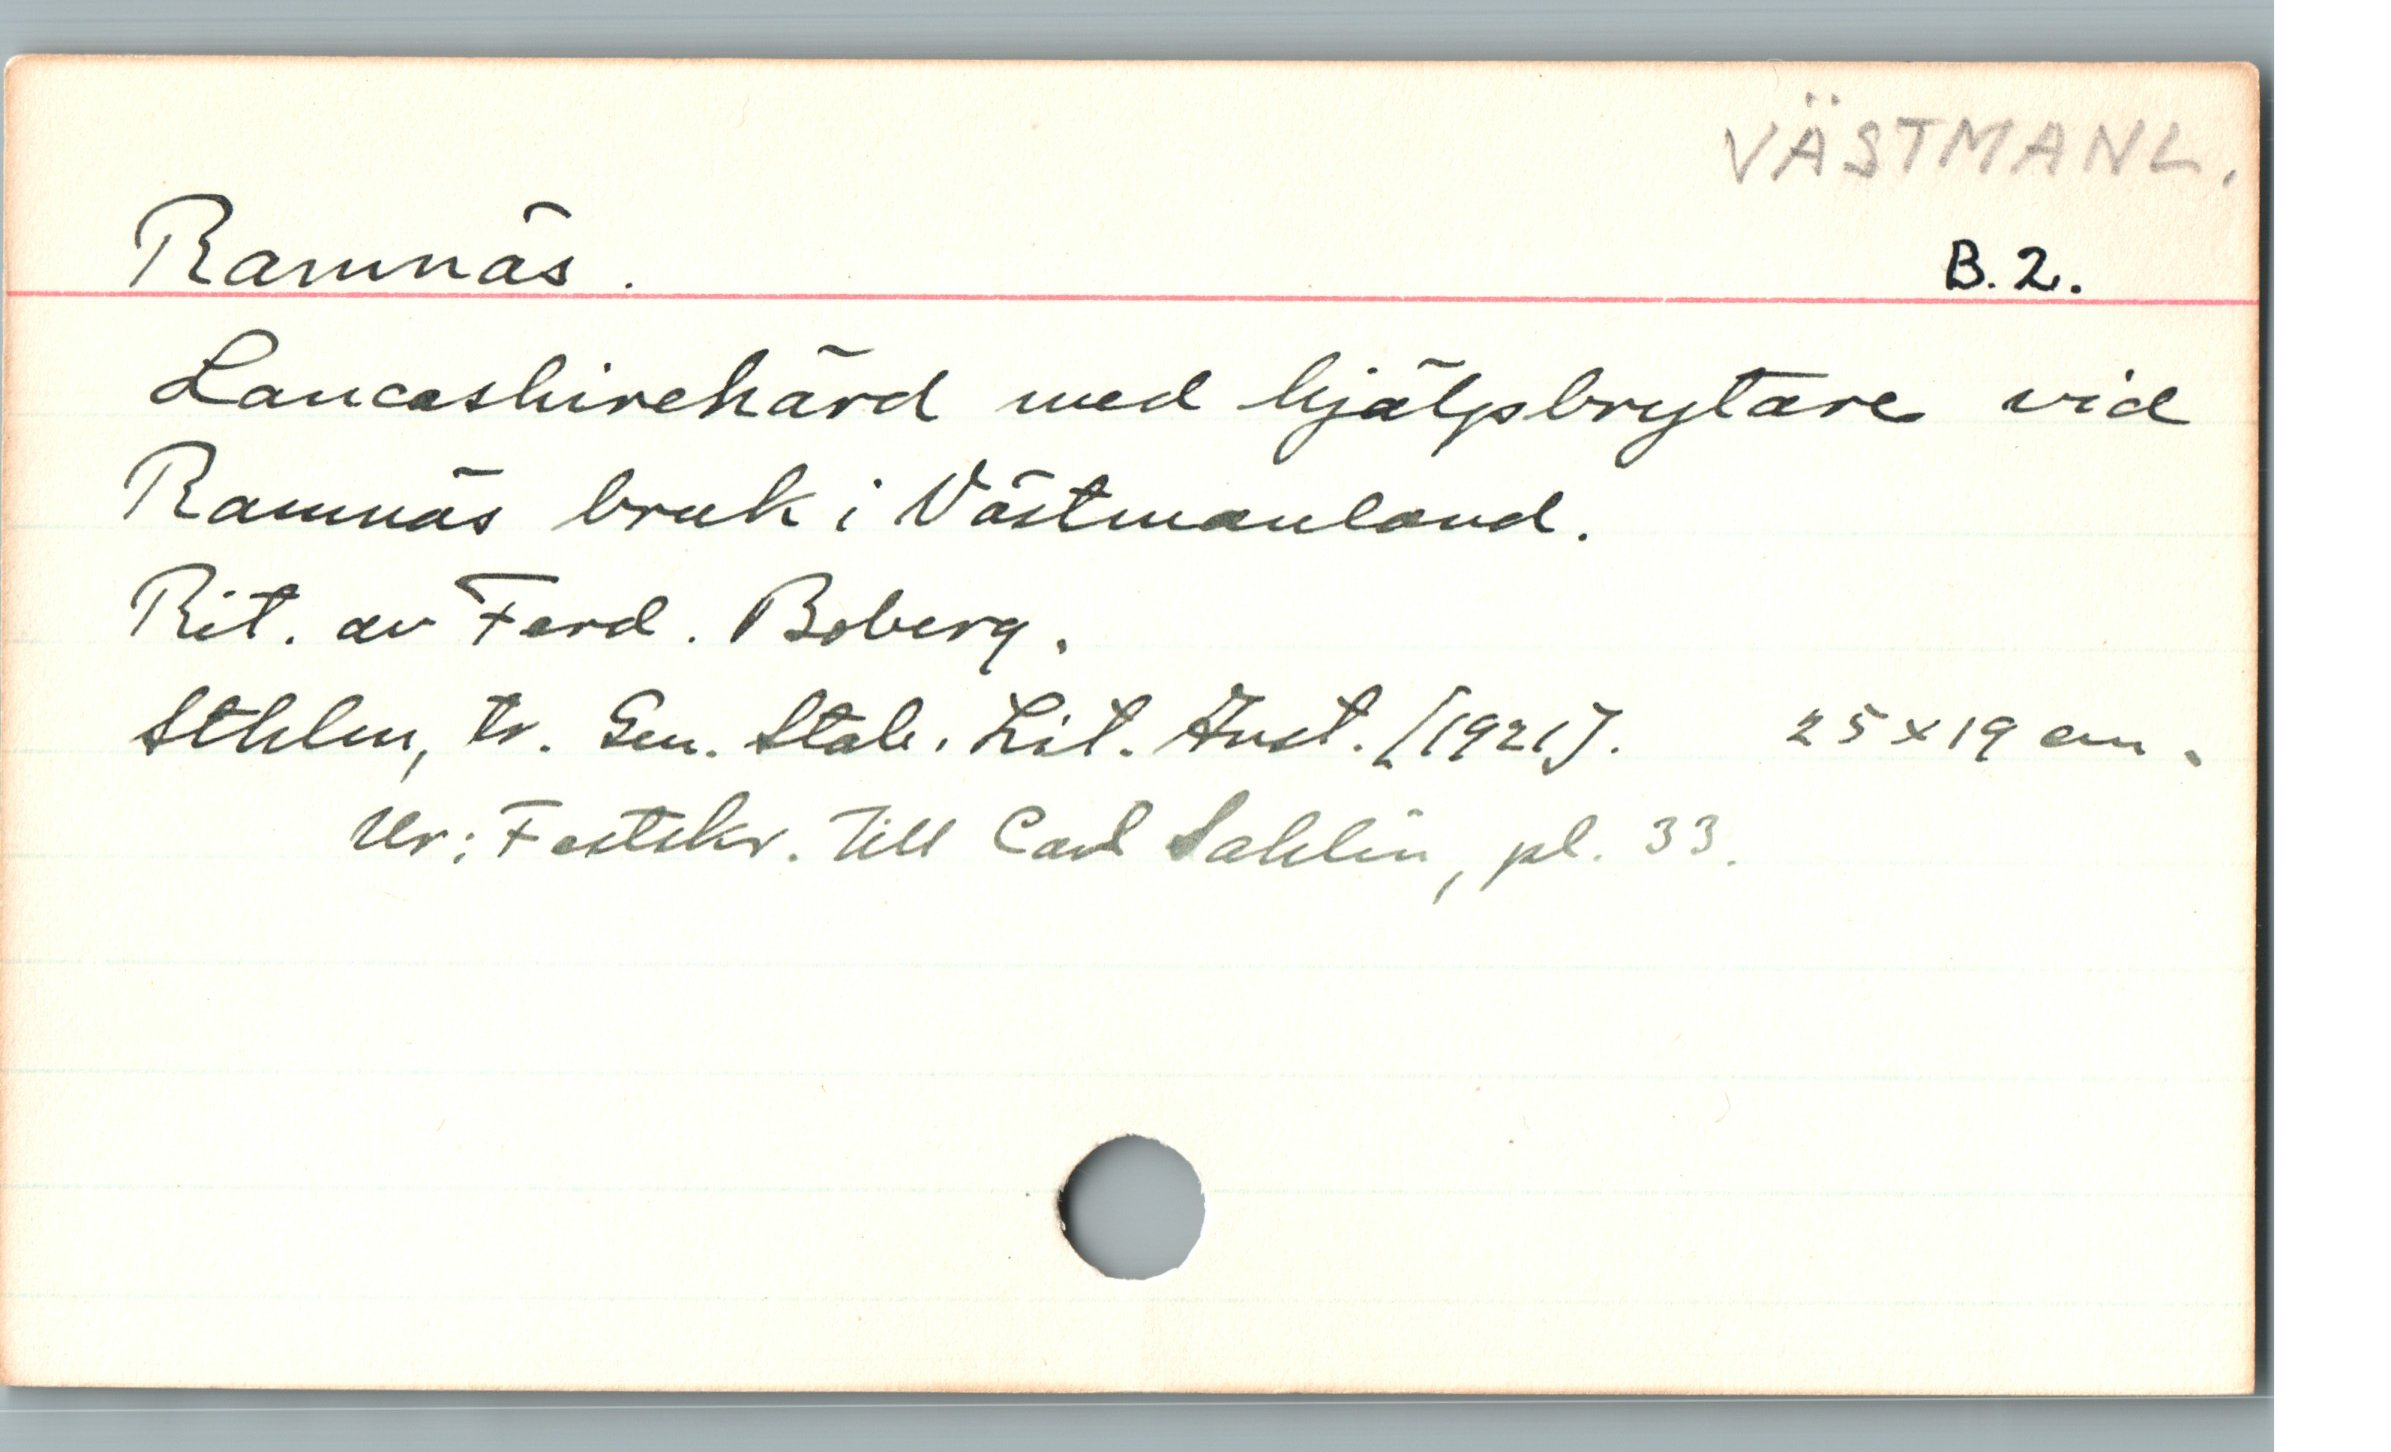 VÄSTMANL.
Ramnäs. B.2.
Lancashirehärd med hjälpbrytare vid
Ramnäs bruk i Västmanland.
Rit. av Ferd. Boberg.
Sthlm, tr. Gen. Stab. Lit. Anst. [1921]. 25 x 19 cm.
Ur: Festskr. till Carl Sahlin, pl. 33.